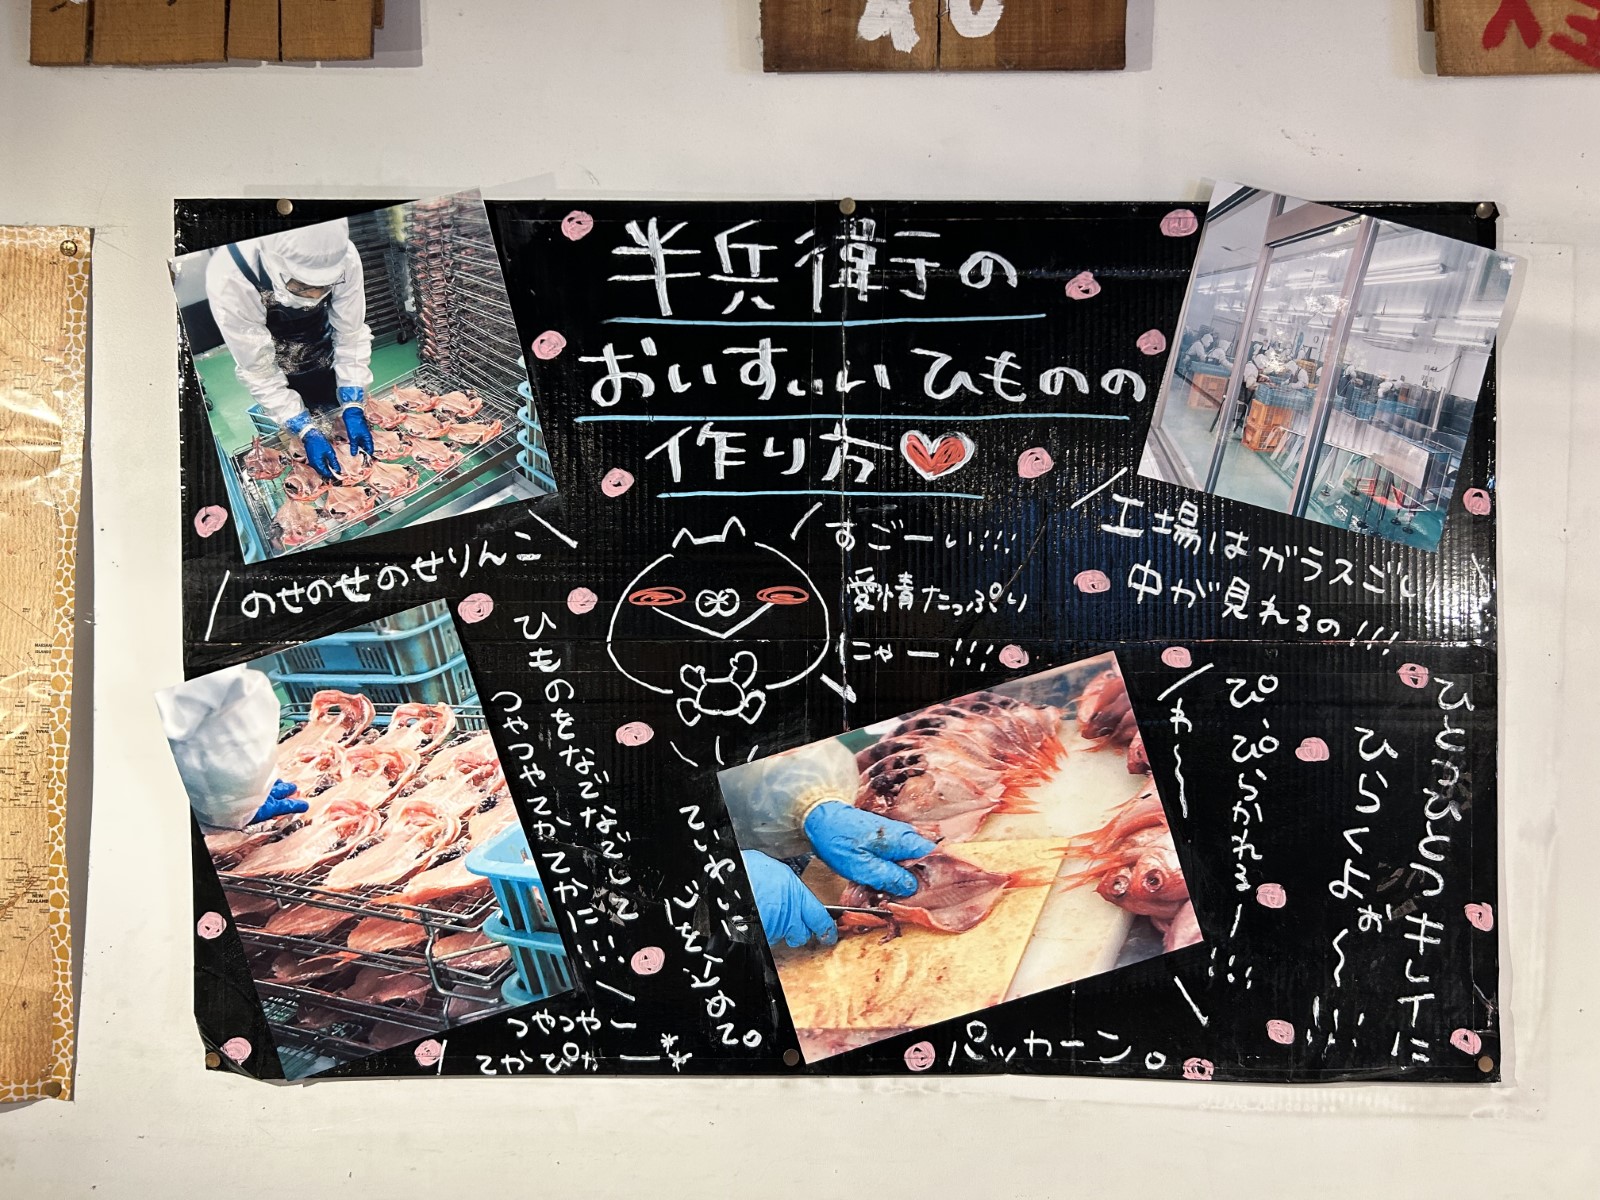 半兵衛の
おいすぃい ひものの
作り方
のせのせのせりんこ
すごーい!!!
愛情たっぷり
にゃー!!!
工場はガラスごし
中が見れるの!!!
ひものをなでなでして
つやつやてかてかに!!!
つやつやー
てかぴかー
ていねいに
じを込めて。
わ〜
ぴ、ぴらかれるー!!!
ひとつひとつキレイに
ひらくよぉ〜!!!
パッカーン。